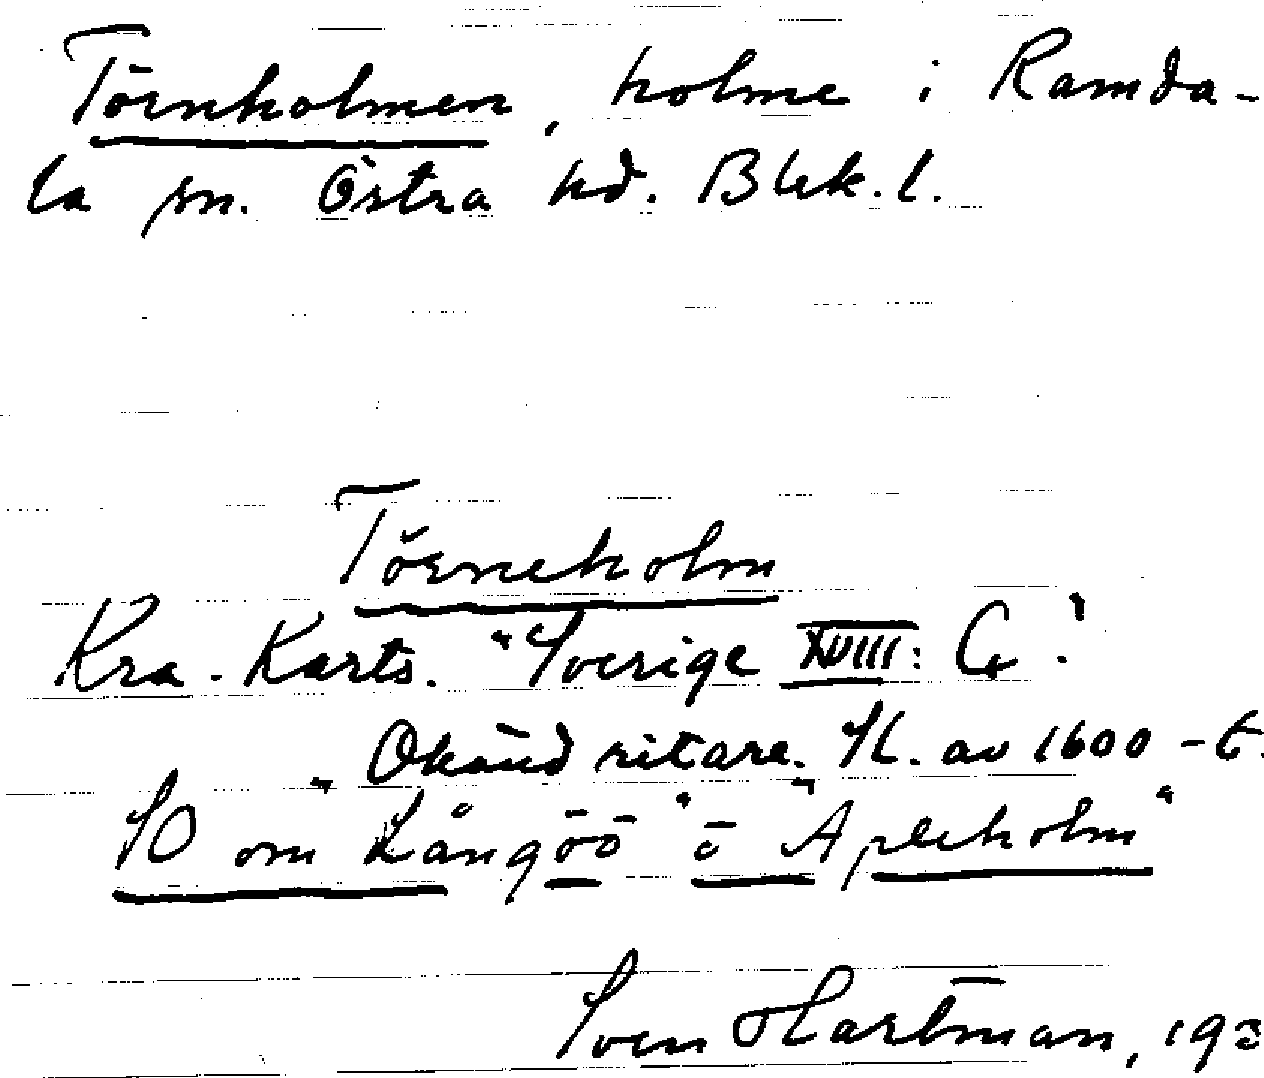 Törnholmen, holme i Ramda-
la sn. Östra hd. Blek. l.
Törneholm
Kra. Karts. "Sverige XVIII: G"
Okänd ritare. Sl. av 1600-t.
SO om "Långöö" o "Apleholm"
Sven Hartman, 193